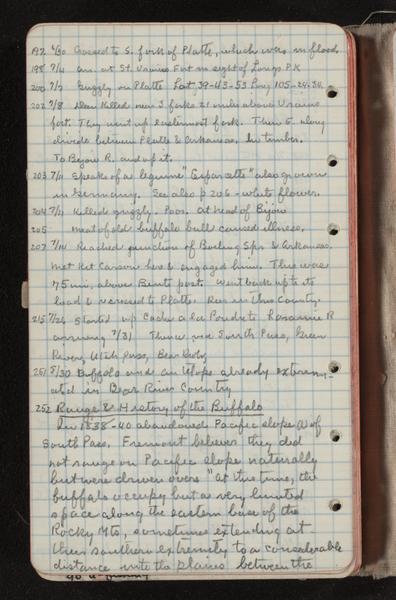 192 6/30 Crossed to S. fork of Platte, which was in flood.
198 7/9 Arr. at St. Vrains Fort in sight of Longs P.K.
200 7/7 Grizzly on Platte Lat. 39-43-53 Long 105-24-34
202 7/8 Deer killed near 3 forks 21 miles above Vrains
fort. They went up Easternmost fork. Then E. along
divide between Platte & Arkansas. In timber.
To Bijou R. and up it.
203 7/11 Speaks of a legume "Esparcette" also grown
in Germany. See also p 206 - white flower.
204 7/11 Killed grizzly. Poor. At head of Bijou
205 meat of old buffalo bull caused illness.
207 7/14 Reached junction of Boiling Spr & Arkansas.
Met Kit Carson here & engaged him. This was
75 mi. above Bents post. Went back up to its
head & recrossed to Platte. Deer in this County.
215 7/26 Started up Cache a la Poudre to Laramie R
arriving 7/31 Thence via South Pass, Green
River, Utah Pass, Bear River,
251 8/30 Buffalo and antelope already exterminated
in Bear River Country
252 Range & History of the Buffalo
In 1838-40 abandoned Pacific slope W of
South Pass. Fremont believes they did
not range on Pacific slope naturally
but were driven over "At this time, the
buffalo occupy but a very limited
space along the eastern base of the
Rocky Mts, sometimes extending at
their southern extremity to a considerable
distance into the plains between the